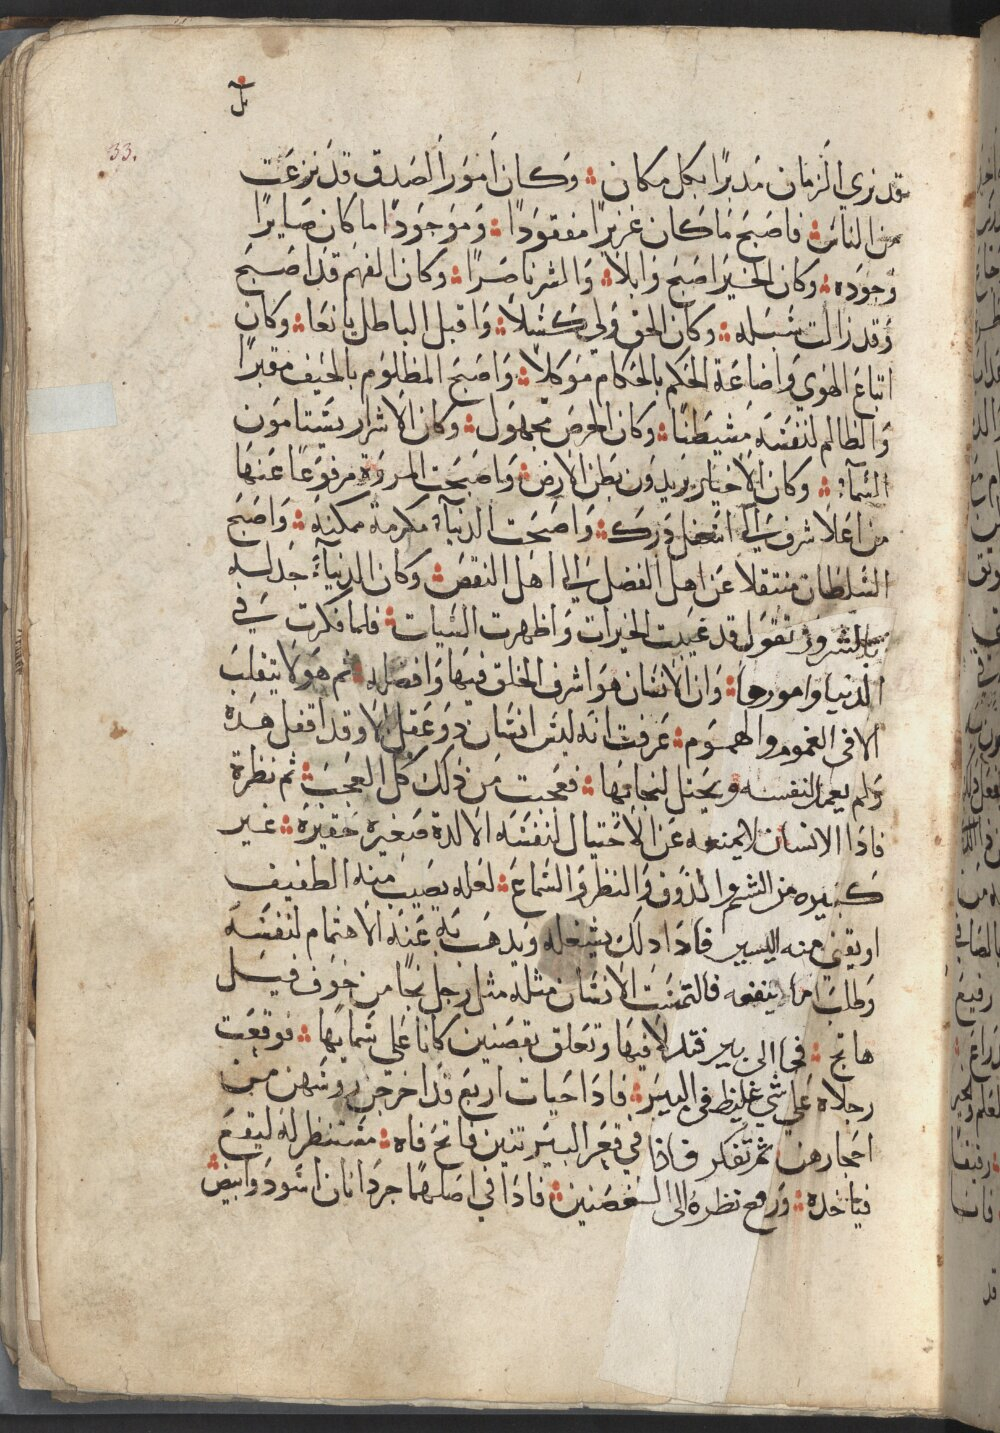 33.
فقد نري الزمان مدبرًا بكل مكان ؞ وكان امور الصدق قد نزعت
من الناس ؞ فاصبح ما كان غزيرًا مفقودًا ؞ وموجودًا ما كان صايرًا
وجوده ؞ وكان الخير اصبح ذابلا ؞ والشر ناصرًا ؞ وكان الفهم قد اصبح
وقد زالت سبله ؞ وكان الحق ولي كسلا ؞ واقبل الباطل يانعا ؞ وكان
اتباع الهوي واضاعة الحكم بالحكام موكلا ؞ واصبح المظلوم بالحيف مقرًا
والظالم لنفسه مشيطنا ؞ وكان الحرص مجهول ؞ وكان الاشرار يسامون
السمآء ؞ وكان الاخيار يريدون بطن الارض ؞ واصبحت المروة مرفوعًا عنها
من اعلا شرف الي اسفل درك ؞ واصبحت الدنآة مكرمة ممكنه ؞ واصبح
السلطان منتقلا عن اهل الفضل الي اهل النقص ؞ وكان الدنيآء جدله
بالسرور تقول قد غيبت الخيرات واظهرت السيات ؞ فلما فكرت في
الدنيا وامورها ؞ وان الانسان هو اشرف الخلق فيها وافضله ؞ ثم هو لا يتقلب
الا في الغموم والهموم ؞ عرفت انه ليس انسان ذو عقل الا وقد اقفل هذه
ولم يعمل لنفسه ويحتل لنجاتها ؞ فعجبت من ذلك كل العجب ؞ ثم نظرة
فاذا الانسان لا يمنعه عن الاحتيال لنفسه الا لدة صغيرة حقيرة ؞ غير
كبيره من الشم والذوق والنظر والسماع ؞ لعله يصيب منه الطفيف
او يقني منه اليسير فاذا ذلك يشغله ويدهب به عنه الاهتمام لنفسه
وطلب ما ينفعه فالتمست الانسان مثله مثل رجل نجا من خوف فيل
هايج ؞ فجا الى بير فتدلا فيها وتعلق بغصنين كانا علي شمايها ؞ فوقعت
رجلاه علي شي غليظ في البير ؞ فاذا حيات اربع قد اخرجن روسهن من
احجارهن ثم تفكر فاذا في قعر البير تنين فاتح فاه ؞ منتظر له ليقع
فياخده ؞ ورفع نظره الى الغصنين ؞ فاذا في اصلهما جردانان اسود وابيض ؞